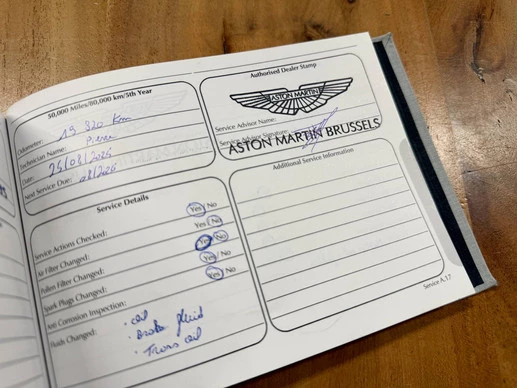 50,000 Miles/80,000 km/5th Year
Odometer: 19 820 Km
Technician Name:
Date: 25/08/2025
Next Service Due: 08/2026
Service Details
Service Actions Checked: Yes No
Air Filter Changed: Yes/No
Pollen Filter Changed: Yes No
Spark Plugs Changed: Yes/No
Anti Corrosion Inspection: Yes No
Fluids Changed: · oil
· Brake fluid
· Trans oil
Authorised Dealer Stamp
ASTON MARTIN
Service Advisor Name:
Service Advisor Signature:
ASTON MARTIN BRUSSELS
Additional Service Information
Service A.17